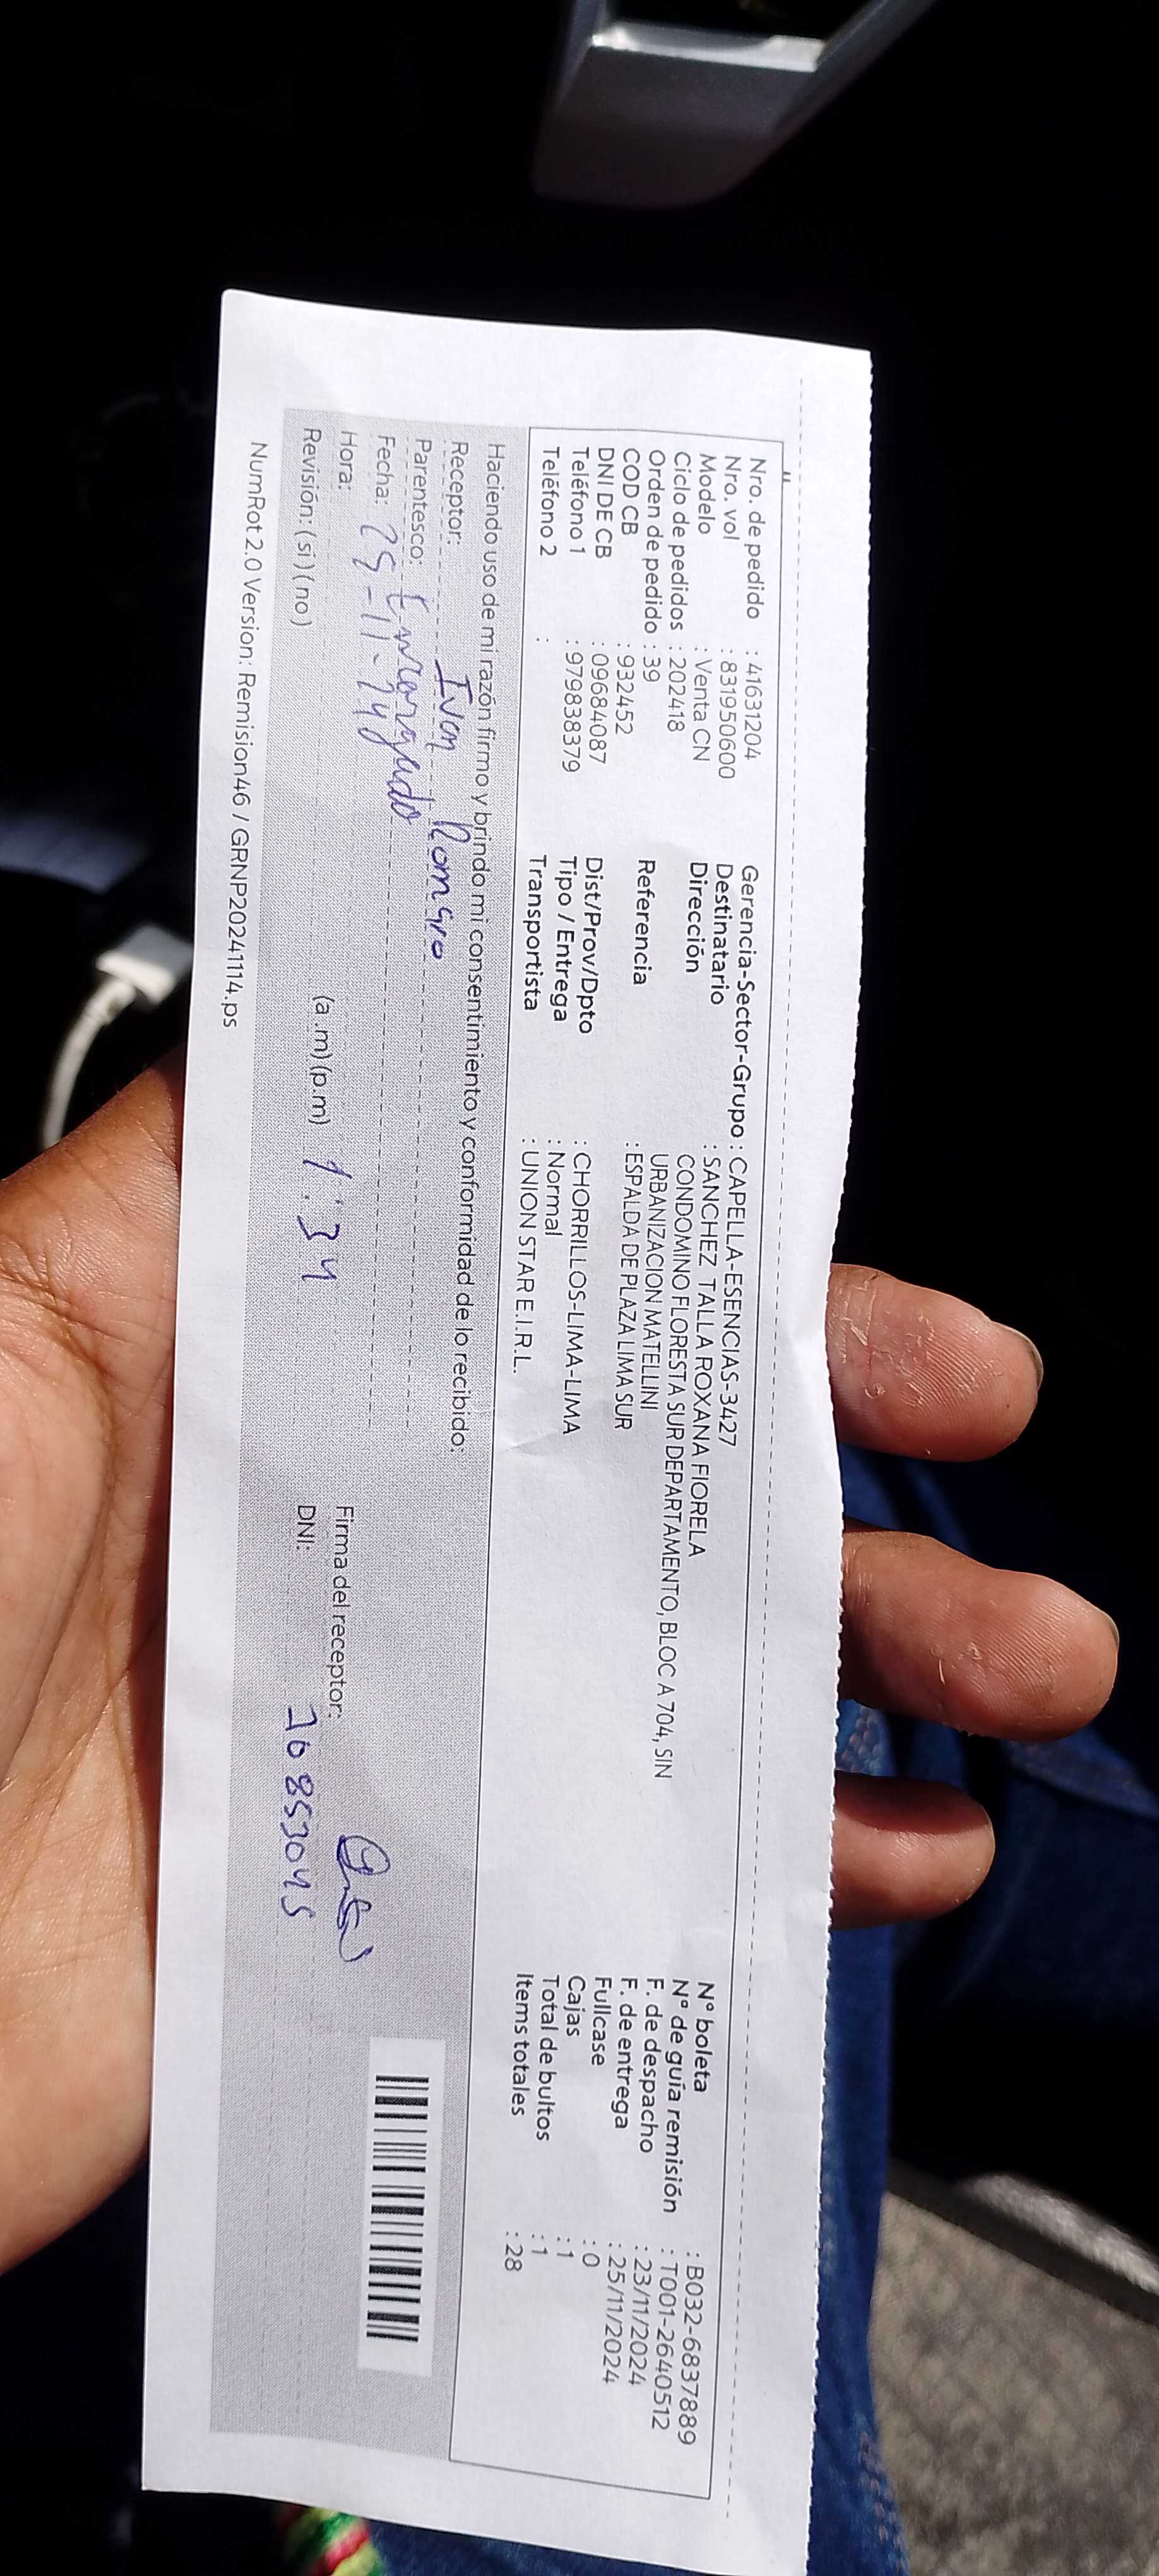 Nro. de pedido : 41631204
Nro. vol : 831950600
Modelo : Venta CN
Ciclo de pedidos : 202418
Orden de pedido : 39
COD CB : 932452
DNI DE CB : 09684087
Teléfono 1 : 979838379
Teléfono 2 :
Gerencia-Sector-Grupo : CAPELLA-ESENCIAS-3427
Destinatario : SANCHEZ TALLA ROXANA FIORELA
Dirección CONDOMINO FLORESTA SUR DEPARTAMENTO, BLOC A 704, SIN
URBANIZACION MATELLINI
Referencia : ESPALDA DE PLAZA LIMA SUR
Dist/Prov/Dpto : CHORRILLOS-LIMA-LIMA
Tipo / Entrega : Normal
Transportista : UNION STAR E.I.R.L.
N° boleta : B032-6837889
N° de guía remisión : T001-2640512
F. de despacho : 23/11/2024
F. de entrega : 25/11/2024
Fullcase : 0
Cajas : 1
Total de bultos : 1
Items totales : 28
Haciendo uso de mi razón firmo y brindo mi consentimiento y conformidad de lo recibido:
Receptor: Ivan Romero
Parentesco: Encargado
Fecha:
Hora: (a .m) (p.m) 1:34
Revisión: (si) (no)
Firma del receptor:
DNI:
NumRot 2.0 Version: Remision46 / GRNP20241114.ps